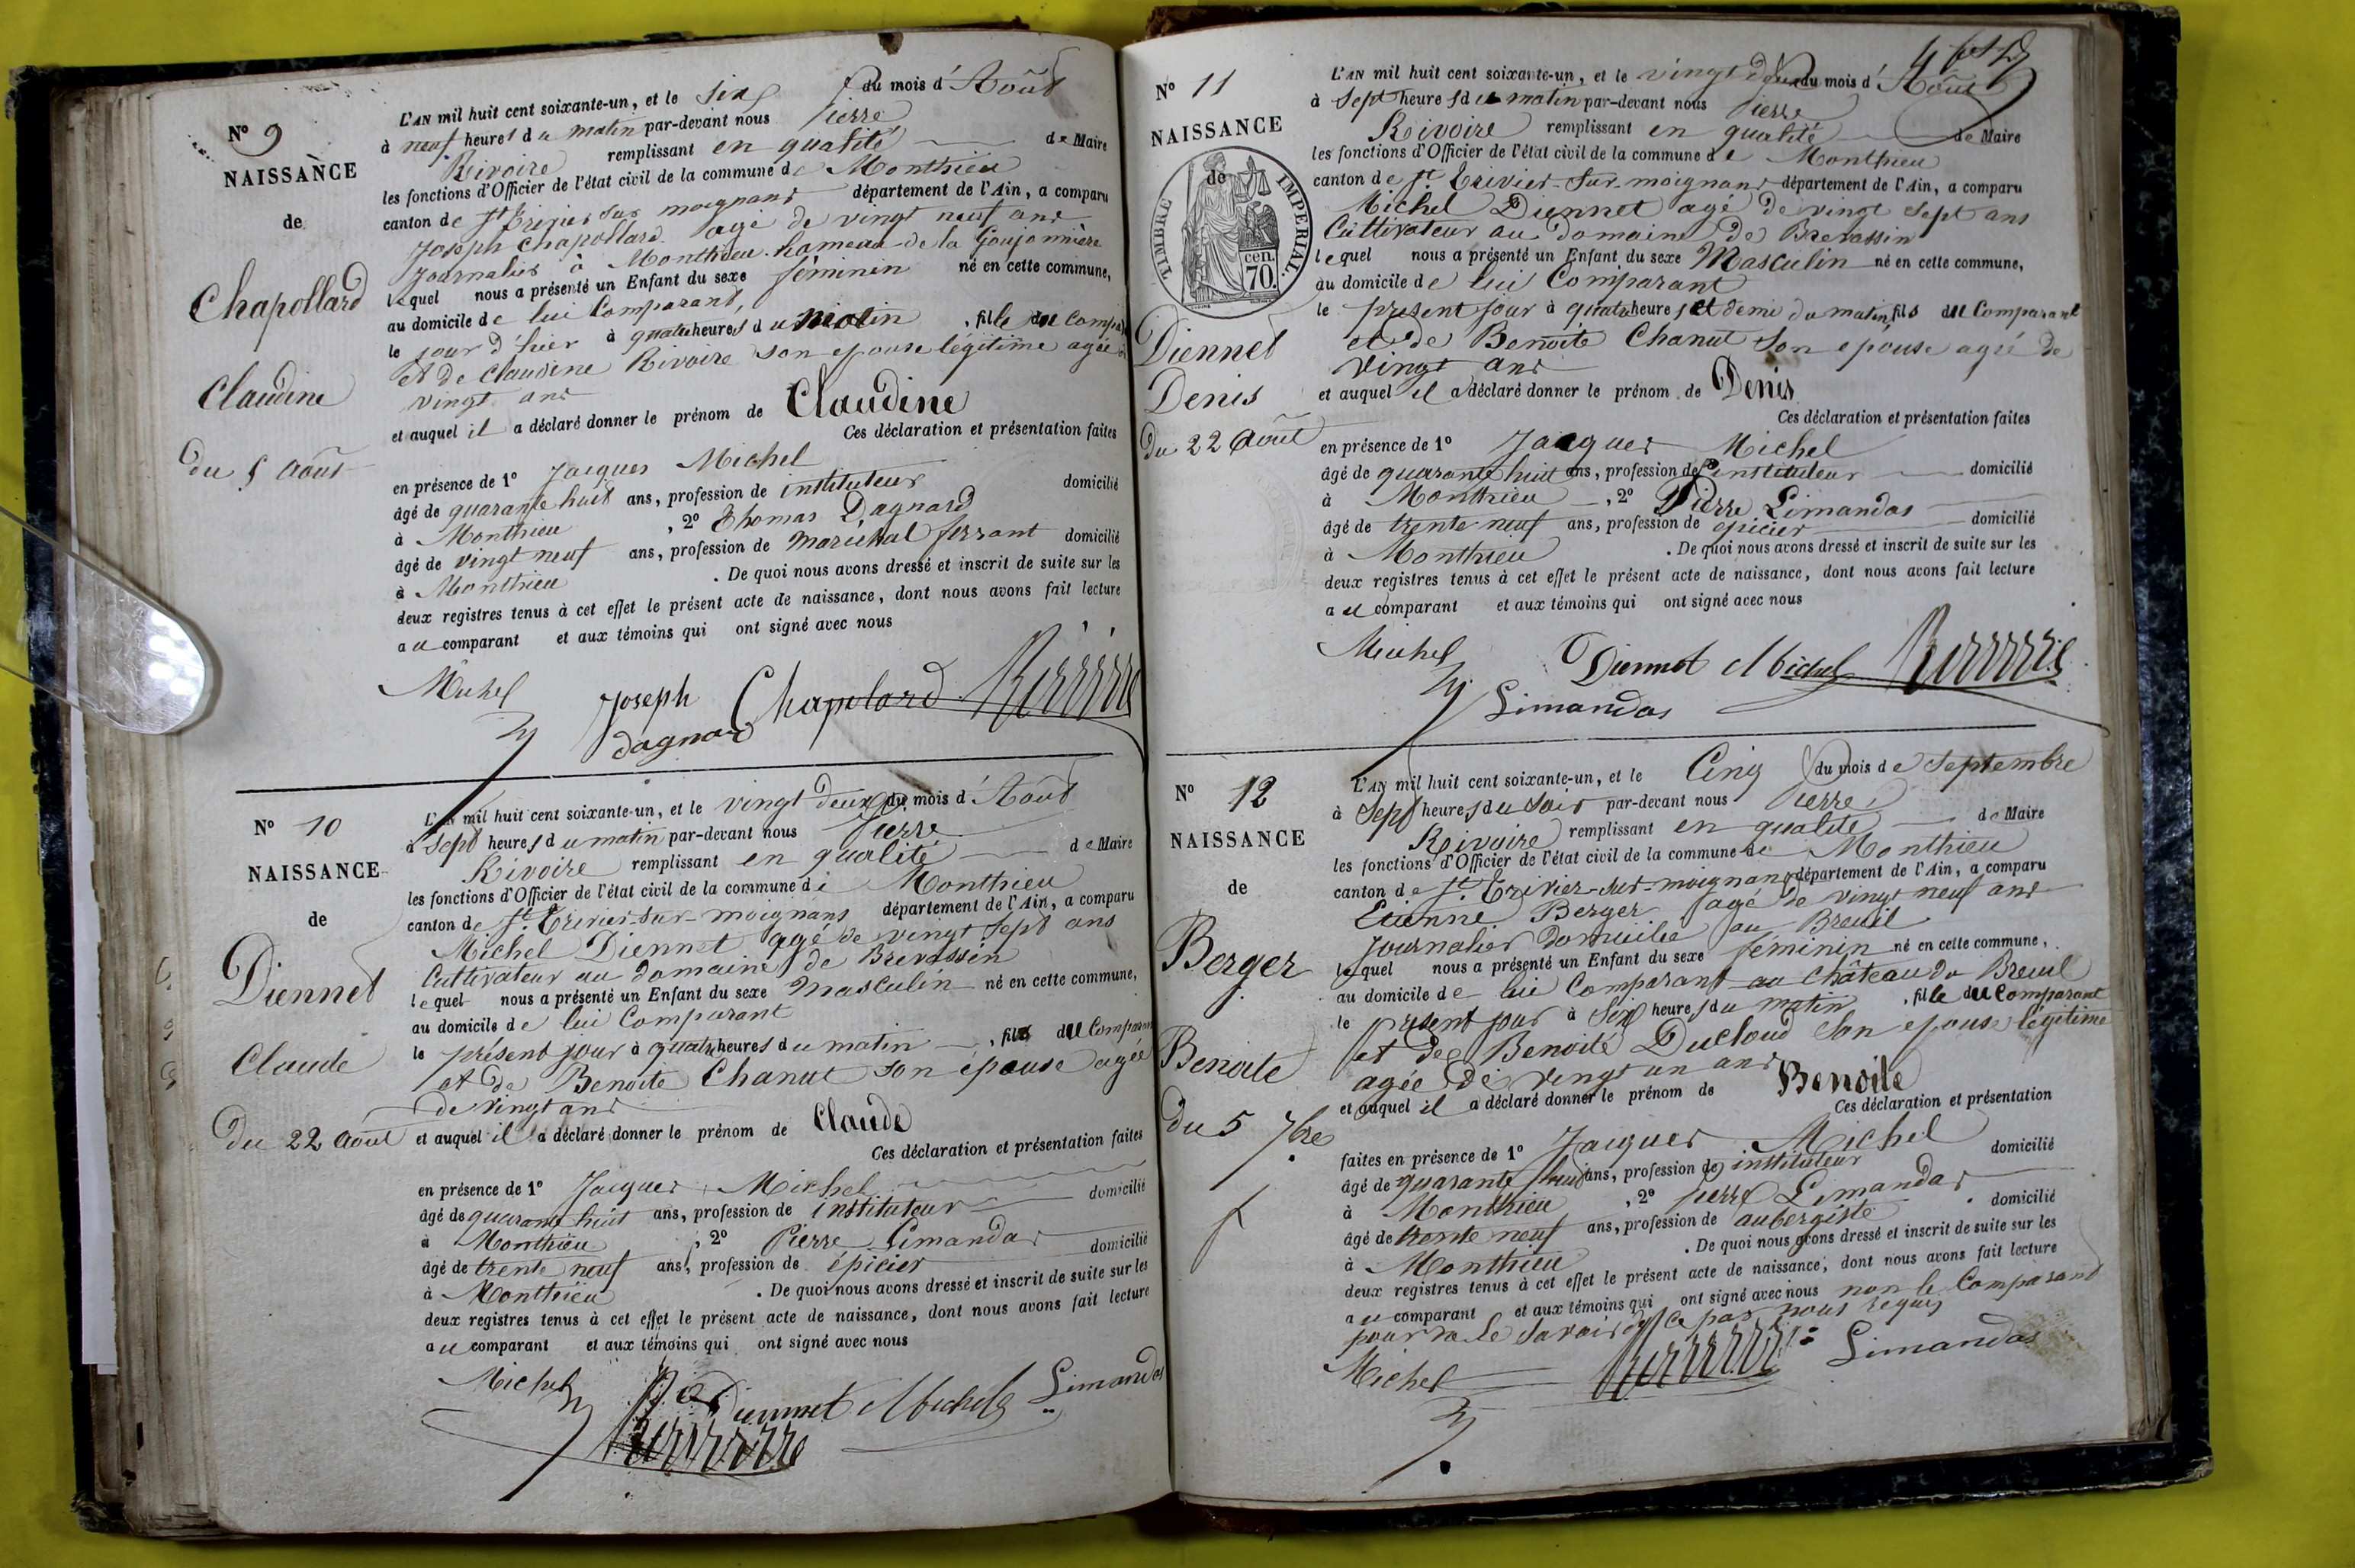 N° 9
NAISSANCE
de
Chapollard
Claudine
du 5 Août
L'AN mil huit cent soixante-un, et le six du mois d'Août
à neuf heures du matin par-devant nous Pierre
Rivoire remplissant en qualité de Maire
les fonctions d'Officier de l'état civil de la commune de Monthieu
canton de St Trivier sur moignans département de l'Ain, a comparu
Joseph Chapollard agé de vingt neuf ans
Journalier à Monthieu hameau de la Goujonnière
lequel nous a présenté un Enfant du sexe féminin né en cette commune,
au domicile de lui Comparant,
le jour d'hier à quatre heures du matin, fille du Compa
et de Claudine Rivoire son epouse légitime agée
vingt ans
et auquel il a déclaré donner le prénom de Claudine
Ces déclaration et présentation faites
en présence de 1° Jacques Michel
âgé de quarante huit ans, profession de instituteur domicilié
à Monthieu, 2° Thomas Dagnard
âgé de vingt neuf ans, profession de maréchal ferrant domicilié
à Monthieu. De quoi nous avons dressé et inscrit de suite sur les
deux registres tenus à cet effet le présent acte de naissance, dont nous avons fait lecture
au comparant et aux témoins qui ont signé avec nous
Michel Joseph Chapolard Rivoire
dagnard
N° 10
NAISSANCE
de
Diennet
Claude
Du 22 Août
L'AN mil huit cent soixante-un, et le vingt deux du mois d'Août
à Sept heures du matin par-devant nous Pierre
Rivoire remplissant en qualité de Maire
les fonctions d'Officier de l'état civil de la commune de Monthieu
canton de St. Trivier-sur-moignans département de l'Ain, a comparu
Michel Diennet agé de vingt sept ans
Cultivateur au domaine de Brevassin
lequel nous a présenté un Enfant du sexe masculin né en cette commune,
au domicile de lui Comparant
le présent jour à quatre heures du matin, fils du Comparan
et de Benoite Chanut son épouse agée
de vingt ans
et auquel il a déclaré donner le prénom de Claude
Ces déclaration et présentation faites
en présence de 1° Jacques Michel
âgé de quarante huit ans, profession de instituteur domicilié
à Monthieu, 2° Pierre Limandas
âgé de trente neuf ans, profession de épicier domicilié
à Monthieu. De quoi nous avons dressé et inscrit de suite sur les
deux registres tenus à cet effet le présent acte de naissance, dont nous avons fait lecture
au comparant et aux témoins qui ont signé avec nous
Michel Diennet Michel Limandas
Rivoire
N° 11
NAISSANCE
de
TIMBRE IMPÉRIAL.
cen.
70.
Diennet
Denis
Du 22 Août
L'AN mil huit cent soixante-un, et le vingt deux du mois d'Août
à Sept heures du matin par-devant nous Pierre
Rivoire remplissant en qualité de Maire
les fonctions d'Officier de l'état civil de la commune de Monthieu
canton de St. Trivier-sur-moignans département de l'Ain, a comparu
Michel Diennet agé de vingt sept ans
Cultivateur au domaine de Brevassin
lequel nous a présenté un Enfant du sexe Masculin né en cette commune,
au domicile de lui Comparant
le présent jour à quatre heures et demi du matin, fils du Comparant
et de Benoite Chanut Son epouse agée de
vingt ans
et auquel il a déclaré donner le prénom de Denis
Ces déclaration et présentation faites
en présence de 1° Jacques Michel
âgé de quarante huit ans, profession de instituteur domicilié
à Monthieu, 2° Pierre Limandas
âgé de trente neuf ans, profession de épicier domicilié
à Monthieu. De quoi nous avons dressé et inscrit de suite sur les
deux registres tenus à cet effet le présent acte de naissance, dont nous avons fait lecture
au comparant et aux témoins qui ont signé avec nous
Michel Diennet Michel Rivoire
Limandas
N° 12
NAISSANCE
de
Berger
Benoite
Du 5 7bre
L'AN mil huit cent soixante-un, et le Cinq du mois de Septembre
à Sept heures du Soir par-devant nous Pierre
Rivoire remplissant en qualité de Maire
les fonctions d'Officier de l'état civil de la commune de Monthieu
canton de St. Trivier-sur-moignans département de l'Ain, a comparu
Etienne Berger agé de vingt neuf ans
Journalier domicilié au Breuil
lequel nous a présenté un Enfant du sexe féminin né en cette commune,
au domicile de lui Comparant au Château du Breuil
le présent jour à Six heures du matin, fille du Comparant
et de Benoite Ducloud Son epouse légitime
agée de vingt un ans
et auquel il a déclaré donner le prénom de Benoite
Ces déclaration et présentation
faites en présence de 1° Jacques Michel
âgé de quarante huit ans, profession de instituteur domicilié
à Monthieu, 2° Pierre Limandas
âgé de trente neuf ans, profession de aubergiste domicilié
à Monthieu. De quoi nous avons dressé et inscrit de suite sur les
deux registres tenus à cet effet le présent acte de naissance, dont nous avons fait lecture
au comparant et aux témoins qui ont signé avec nous non le Comparant
pour ne le Savoir de ce par nous requis
Michel Rivoire Limandas